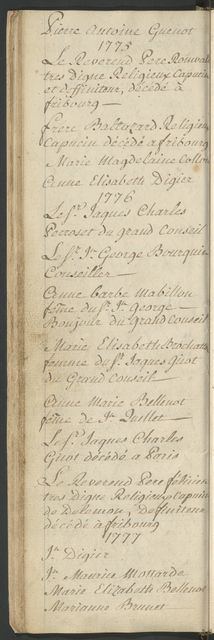 Pierre Antoine Guenot
1775
Le Reverend Pere Bonival
tres digne Religieux Capucin
et definiteur, décédé a
fribourg
frere Baltazard Religieux
Capucin décédé a fribourg
Marie Magdelaine Collon
Anne Elisabeth Digier
1776
Le Sr. Jaques Charles
Perroset du grand Conseil
Le Sr. Jn. George Bourquin
Conseiller
Anne barbe Mabillon
feme du Sr. Jn. George
Bonjour du Grand Conseil
Marie Elisabeth
femme du Sr. Jaques Guot
du Grand Conseil
Anne Marie Bellenot
feme de Jn. Quillet
Le Sr. Jaques Charles
Guot décédé a Paris
Le Reverend Pere felicien
tres digne Religieux Capucin
de Delemon, deffiniteur
décédé a fribourg
1777
Jn. Digier
Jn. Maurice Mottarde
Marie Elizabeth Bellenot
Marianne Brunet